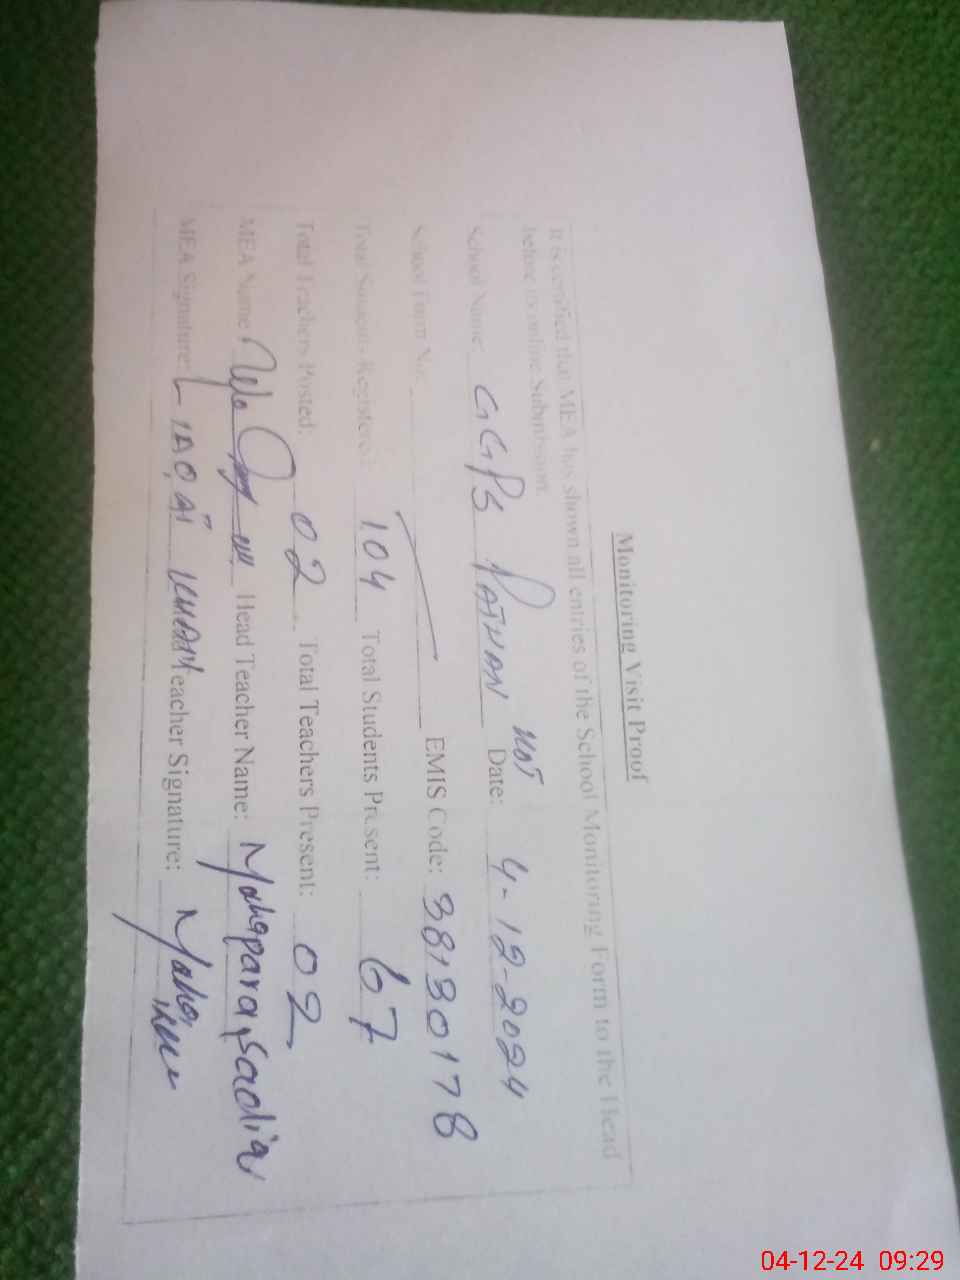 Monitoring Visit Proof
It is certified that MEA has shown all entries of the School Monitoring Form to the Head
before to online Submission.
School Name: GGPS PATHAN KOT Date: 4-12-2024
School Form No: EMIS Code: 38130178
Total Students Registered: 104 Total Students Present: 67
Total Teachers Posted: 02 Total Teachers Present: 02
MEA Name: Head Teacher Name: Mahapara, Sadia
MEA Signature: LIAQAT KHAN Teacher Signature: Maha
04-12-24 09:29